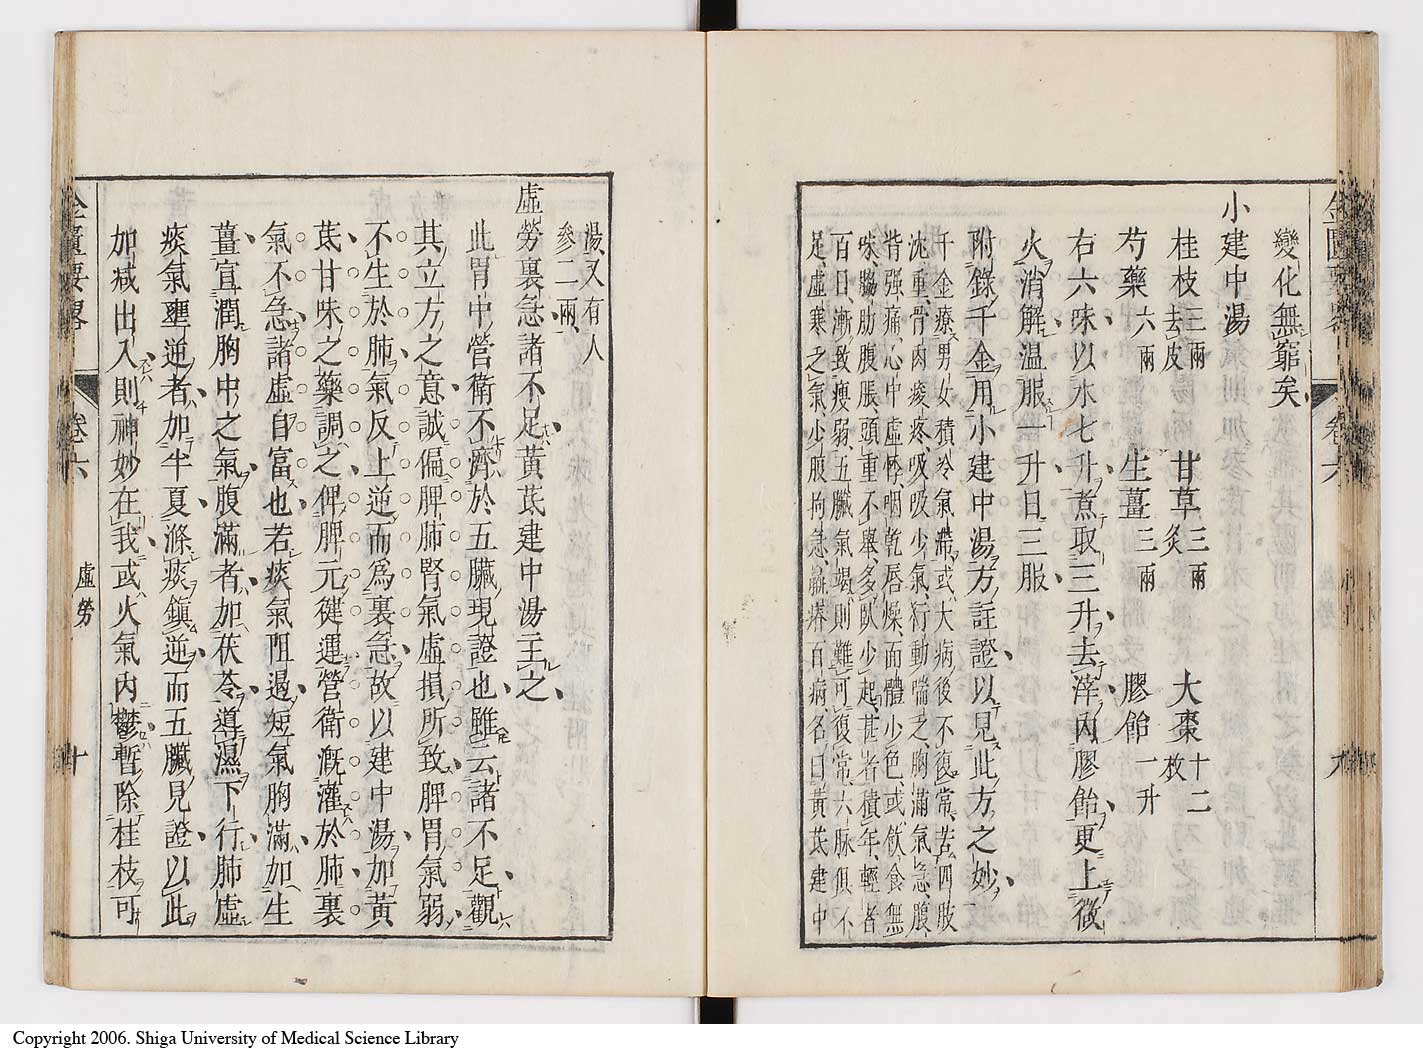 變化無窮矣
小建中湯
桂枝三兩去皮 甘草三兩炙 大棗十二枚
芍藥六兩 生薑三兩 膠飴一升
右六味以水七升煮取三升去滓內膠飴更上微
火消解温服一升日三服
附錄千金用小建中湯方註證以見此方之妙
千金療男女積冷氣滯或大病後不復常苦四肢
沈重骨肉痠疼吸吸少氣行動喘乏胸滿氣急腰
背强痛心中虛悸咽乾唇燥面體少色或飲食無
味脇肋腹脹頭重不舉多臥少起甚者積年輕者
百日漸致瘦弱五臟氣竭則難可復常六脉俱不
足虛寒乏氣少腹拘急羸瘠百病名曰黃茋建中
金匱要畧 卷六 九
湯又有人
參二兩
虛勞裏急諸不足黃茋建中湯主之
此胃中營衛不濟於五臟現證也雖云諸不足觀
其立方之意誠偏脾肺腎氣虛損所致脾胃氣弱
不生於肺氣反上逆而爲裏急故以建中湯加黃
茋甘味之藥調之俾脾元健運營衛漑灌於肺裏
氣不急諸虛自富也若痰氣阻遏短氣胸滿加生
薑宣潤胸中之氣腹滿者加茯苓導濕下行肺虛
痰氣壅逆者加半夏滌痰鎮逆而五臟見證以此
加减出入則神妙在我或火氣內鬱暫除桂枝可
金匱要畧 卷六 虛勞 十
Copyright 2006. Shiga University of Medical Science Library